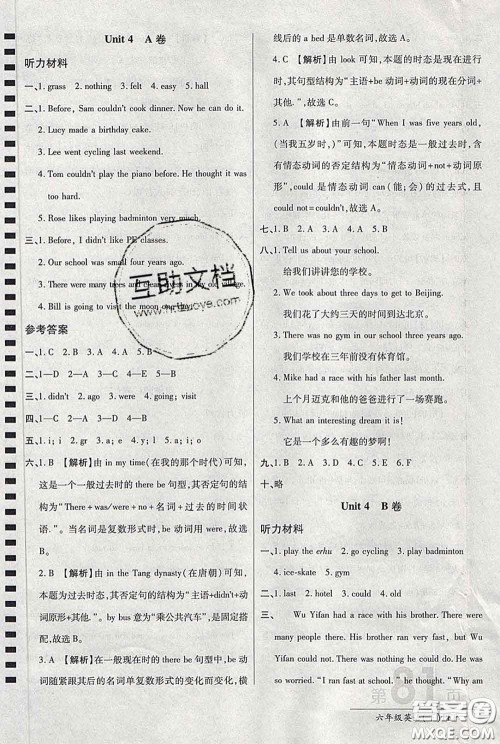 Unit 4 A 卷
听力材料
一、1. grass 2. nothing 3. felt 4. easy 5. hall
二、1. Before, Sam couldn't cook dinner. Now he can do it.
2. Lucy made a birthday cake.
3. Lee went cycling last weekend.
4. Tom couldn't play the piano before. He thought it was
too hard.
5. Rose likes playing badminton very much.
三、1. Before, I didn't like PE classes.
2. Our school was small four years ago.
3. There were many trees and
4. Bill is going to visit the moon one day.
参考答案
一、1. C 2. B 3. A 4. A 5. B
二、1—C 2—D 3—A 4—E 5—B
三、1. didn't 2. ago 3. were 4. visit
四、1—C 2—E 3—A 4—B 5—D
五、1. i; i 2. gr 3. a; e 4. i; e 5. i; e
六、1. B 【解析】由 in my time(在我的那个时代)可知,
这是一个一般过去时的 there be 句型,其结构为
“There+was/were+no+名词+过去的时间状
语.”。当名词是复数形式时,be 动词用 were,故选
B。
2. B 【解析】由 in the Tang dynasty(在唐朝)可知,
本题为过去时态,其否定句的结构为“主语+didn't+动
词原形+其他.”。by bus 意为“乘公共汽车”,是固定搭
配,故选 B。
3. A 【解析】在一般现在时的 there be 句型中,be 动
词随紧跟其后的名词单复数形式的变化而变化,横
线后的 a bed 是单数名词,故选 A。
4. C 【解析】由 look 可知,本题的时态是现在进行时,
其句型结构为“主语+be 动词+动词的现在分词+
其他.”,故选 C。
5. A 【解析】由前一句“When I was five years old,
(当我五岁时,)”可知,本题的时态为一般过去时,含
有情态动词的否定结构为“情态动词+not+动词原
形”,且情态动词为 can(能;会)的过去式,且
couldn't=could not,故选 A。
七、1. B 2. B 3. A 4. A 5. A
八、1. Tell us about your school.
给我们讲讲您的学校。
2. We took three days to get to Beijing.
我们花了大约三天的时间到达北京。
3. There was no gym in our school three years ago.
我们学校在三年前没有体育馆。
4. Mike had a race with his father last month.
上个月迈克和他的爸爸进行了一场赛跑。
5. What an interesting dream it is!
它是一个多么有趣的梦啊!
九、1. B 2. A 3. D 4. C 5. E
十、略
Unit 4 B 卷
听力材料
一、1. play the erhu 2. go cycling 3. play badminton
4. ice-skate 5. gym
二、1. last 2. hotel 3. could 4. before
三、 Wu Yifan had a race with his brother. There were
many friends there. His father and Robin were there,
too. His brother ran fast like a cheetah. But Wu
Yifan could not run fast. He felt worried. He had
some water. He thought it was nothing. “Why am
互助文档
www.hdzuoye.com
第81页
六年级英
答案圈
MXQE.COM